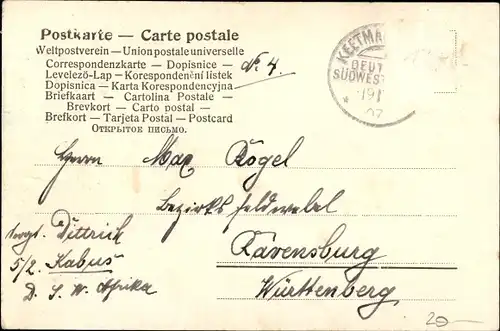 Postkarte — Carte postale
Weltpostverein — Union postale universelle
Correspondenzkarte — Dopisnice —
Levelező-Lap — Korespondenční listek
Dopisnica — Karta Korespondencyjna
Briefkaart — Cartolina Postale —
Brevkort — Carto postal —
Brefkort — Tarjeta Postal — Postcard
ОТКРЫТОЕ ПИСЬМО.
No. 4.
KEETMA
DEUT
SÜDWES
Herrn Max Rögel
Bezirksfeldwebel
Ravensburg
Württemberg
Dittrich
5/2. Kabus
D. S. W. Afrika